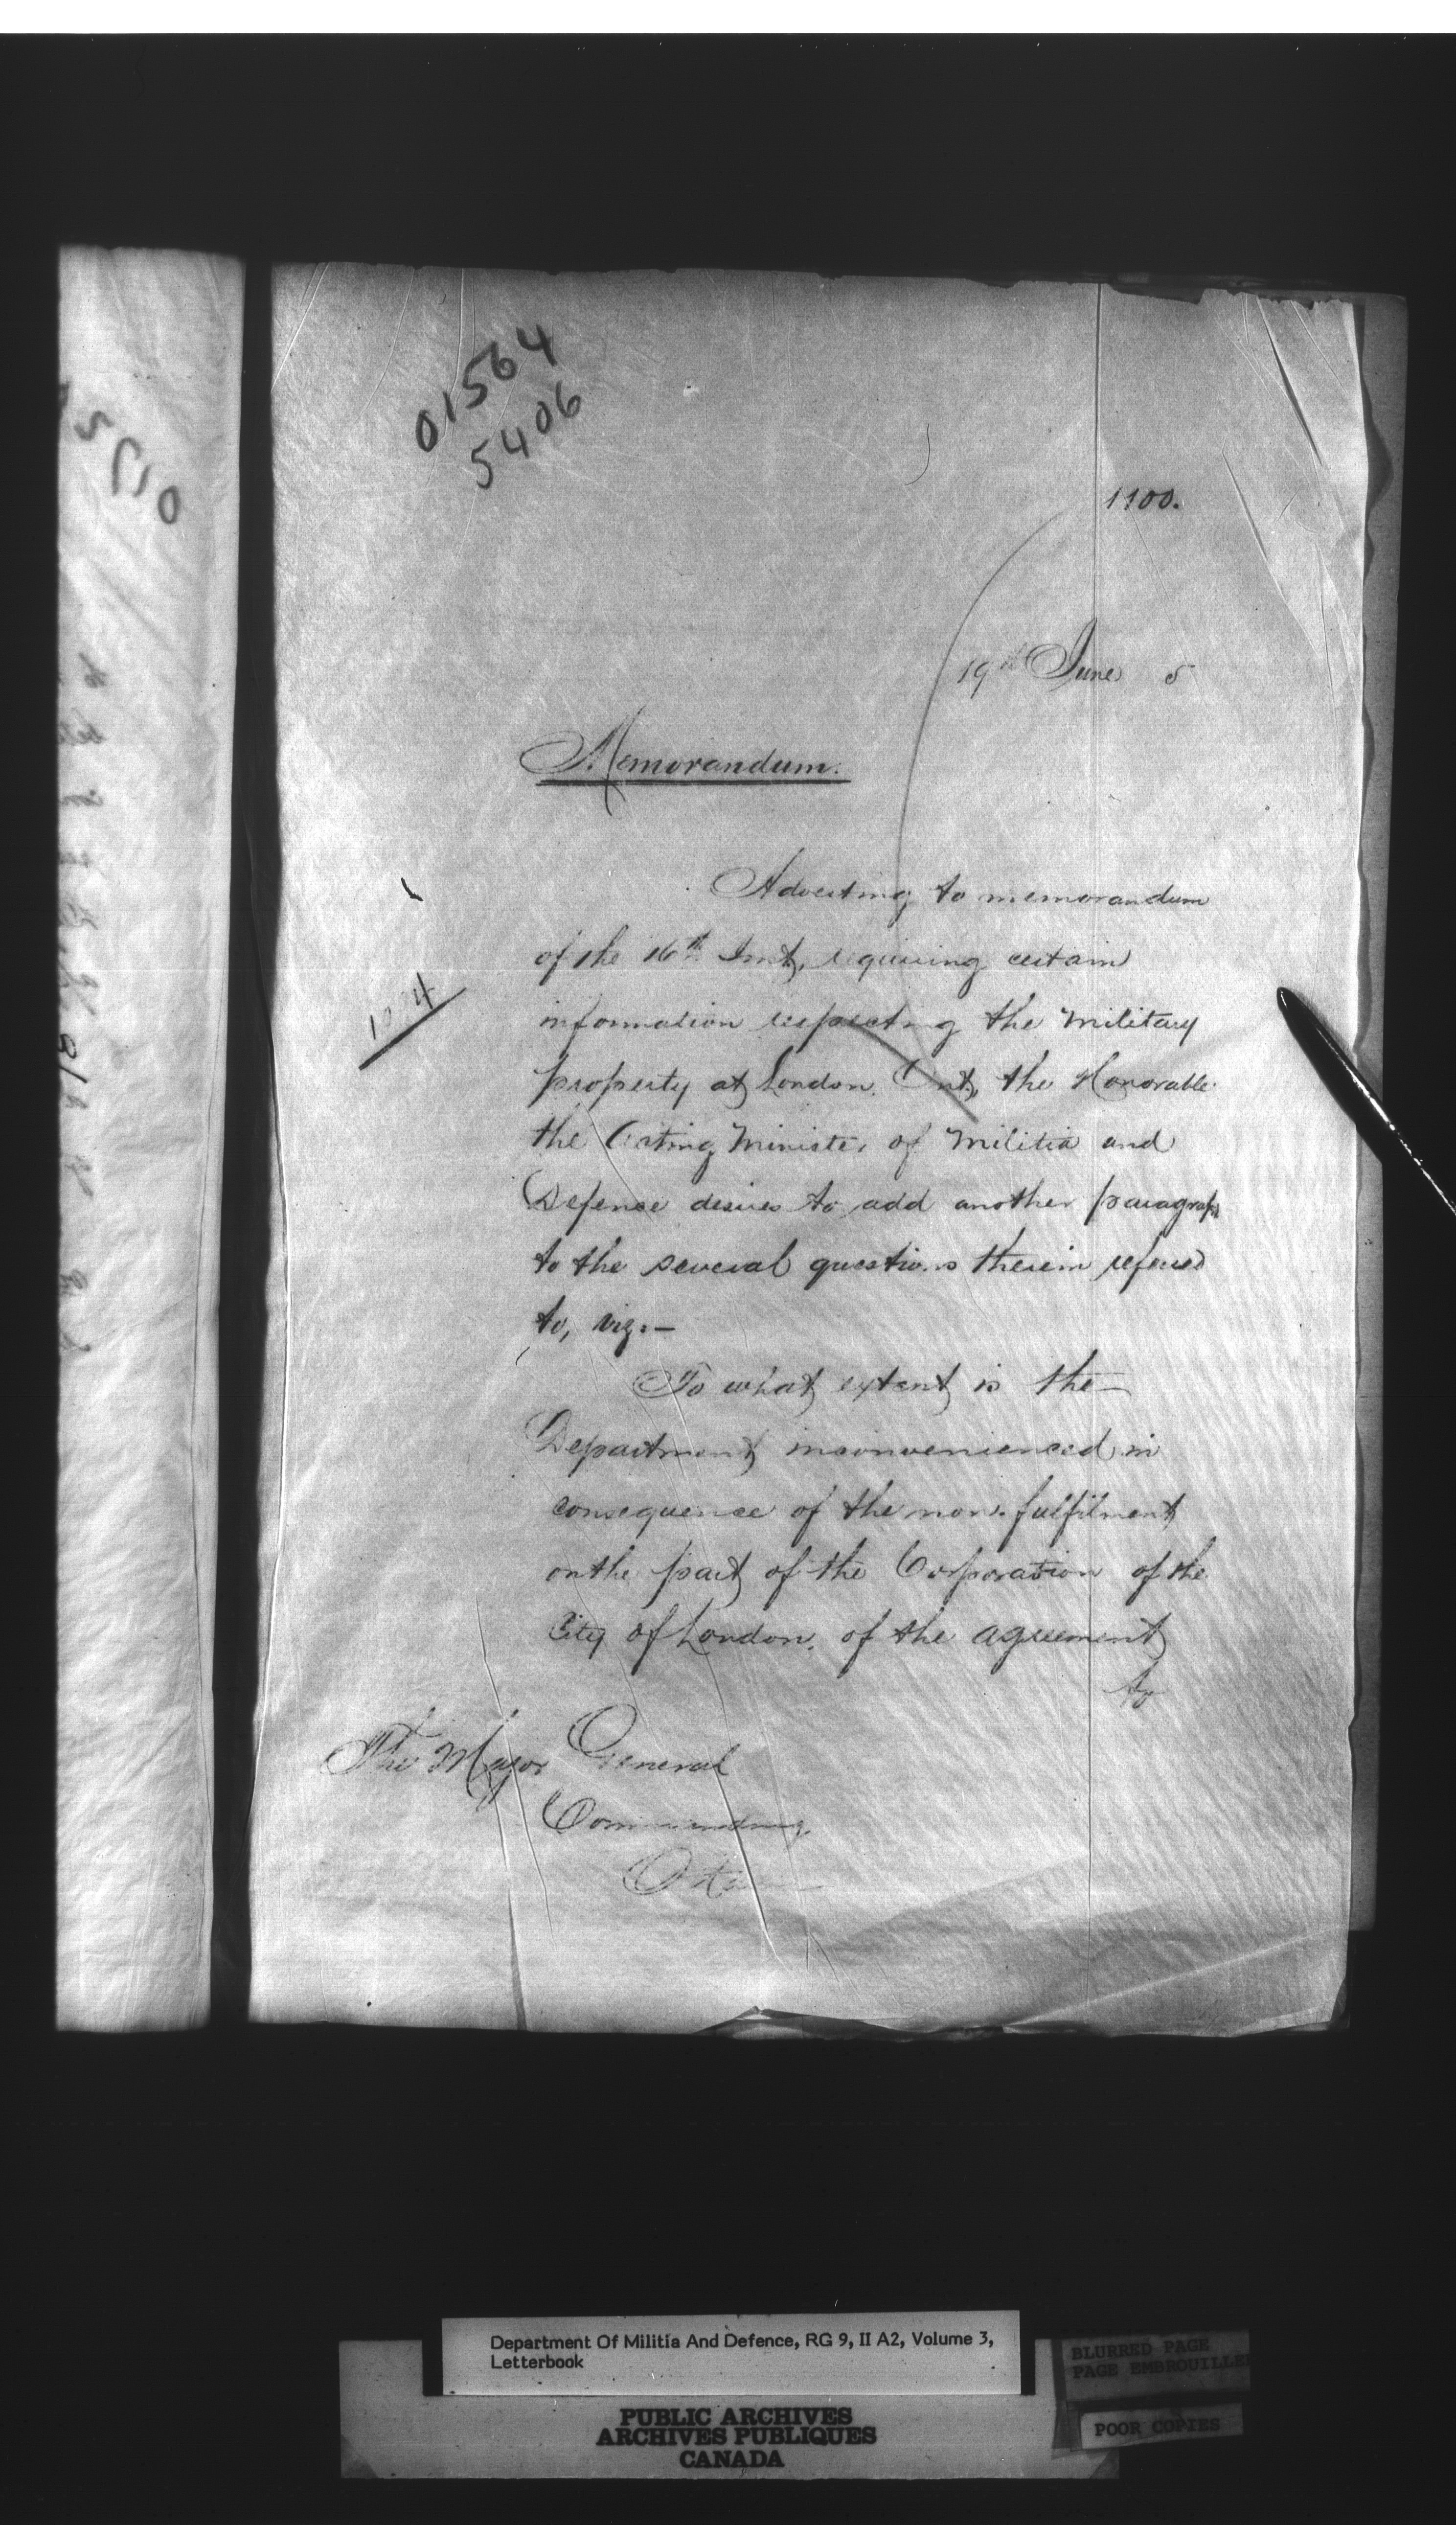 01564
5406
1100.
19th June 5
Memorandum.
Adverting to memorandum
of the 16th Inst, requiring certain
information respecting the Military
property at London. Ont, the Honorable
the Acting Minister of Militia and
Defence desires to add another paragraph
to the several questions therein referred
to, viz:—
To what extent is the
Department inconvenienced in
consequence of the non-fulfilment
on the part of the Corporation of the
City of London, of the agreement
to
The Major General
Commanding
Ottawa
Department Of Militia And Defence, RG 9, II A2, Volume 3,
Letterbook
PUBLIC ARCHIVES
ARCHIVES PUBLIQUES
CANADA
BLURRED PAGE
PAGE EMBROUILLE
POOR COPIES